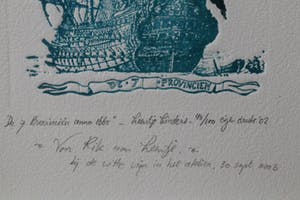 DE · 7 PROVINCIEN
"De 7 Provinciën anno 1665" – Leentje Linders – /100 eigen druk '02
Von Rik van Leentje
bij de witte wijn in het atelier, 30 sept 2002